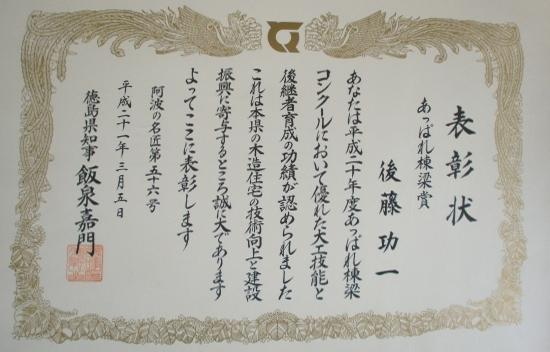 表彰状
あっぱれ棟梁賞
後藤功一
あなたは平成二十年度あっぱれ棟梁
コンクールにおいて優れた大工技能と
後継者育成の功績が認められました
これは本県の木造住宅の技術向上と建設
振興に寄与するところ誠に大であります
よってここに表彰します
阿波の名匠第五十六号
平成二十一年三月五日
徳島県知事 飯泉嘉門